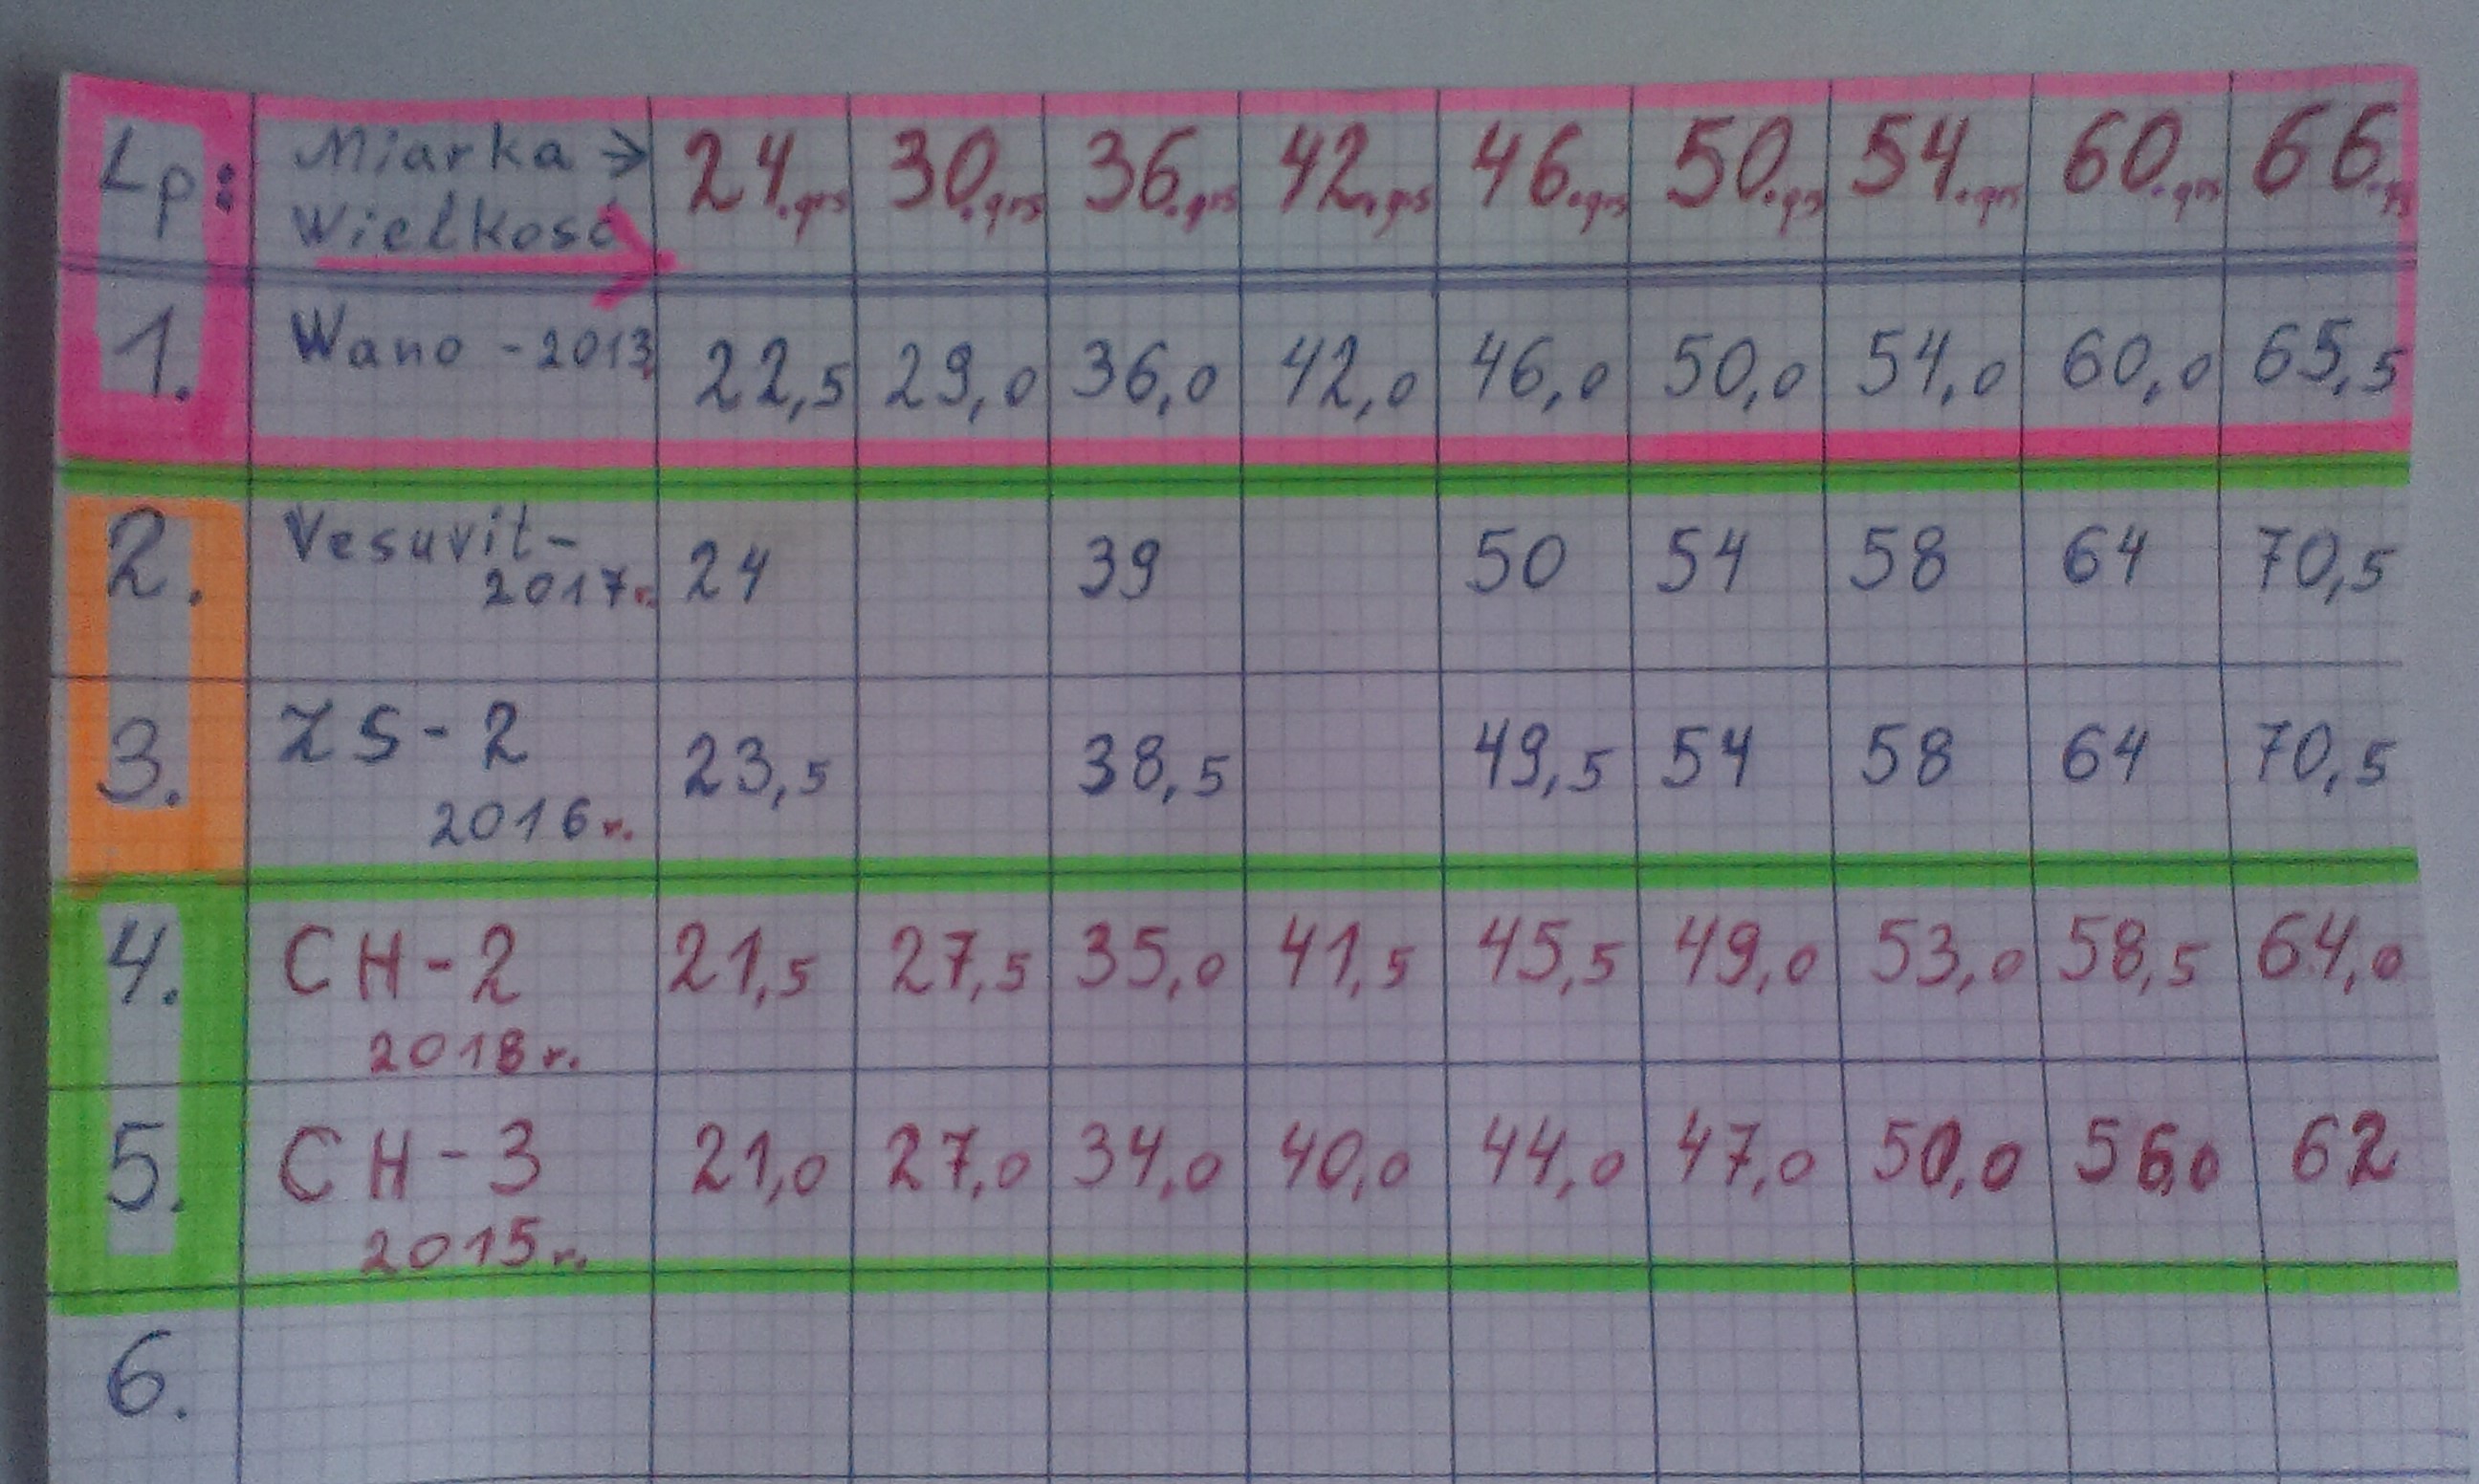 Lp: Miarka → 24.grs 30.grs 36.grs 42.grs 46.grs 50.grs 54.grs 60.grs 66.grs
Wielkość
1. Wano - 2013. 22,5 29,0 36,0 42,0 46,0 50,0 54,0 60,0 65,5
2. Vesuvit- 24 39 50 54 58 64 70,5
2017r.
3. ZS-2 23,5 38,5 49,5 54 58 64 70,5
2016r.
4. CH-2 21,5 27,5 35,0 41,5 45,5 49,0 53,0 58,5 64,0
2018r.
5. CH-3 21,0 27,0 34,0 40,0 44,0 47,0 50,0 56,0 62
2015r.
6.